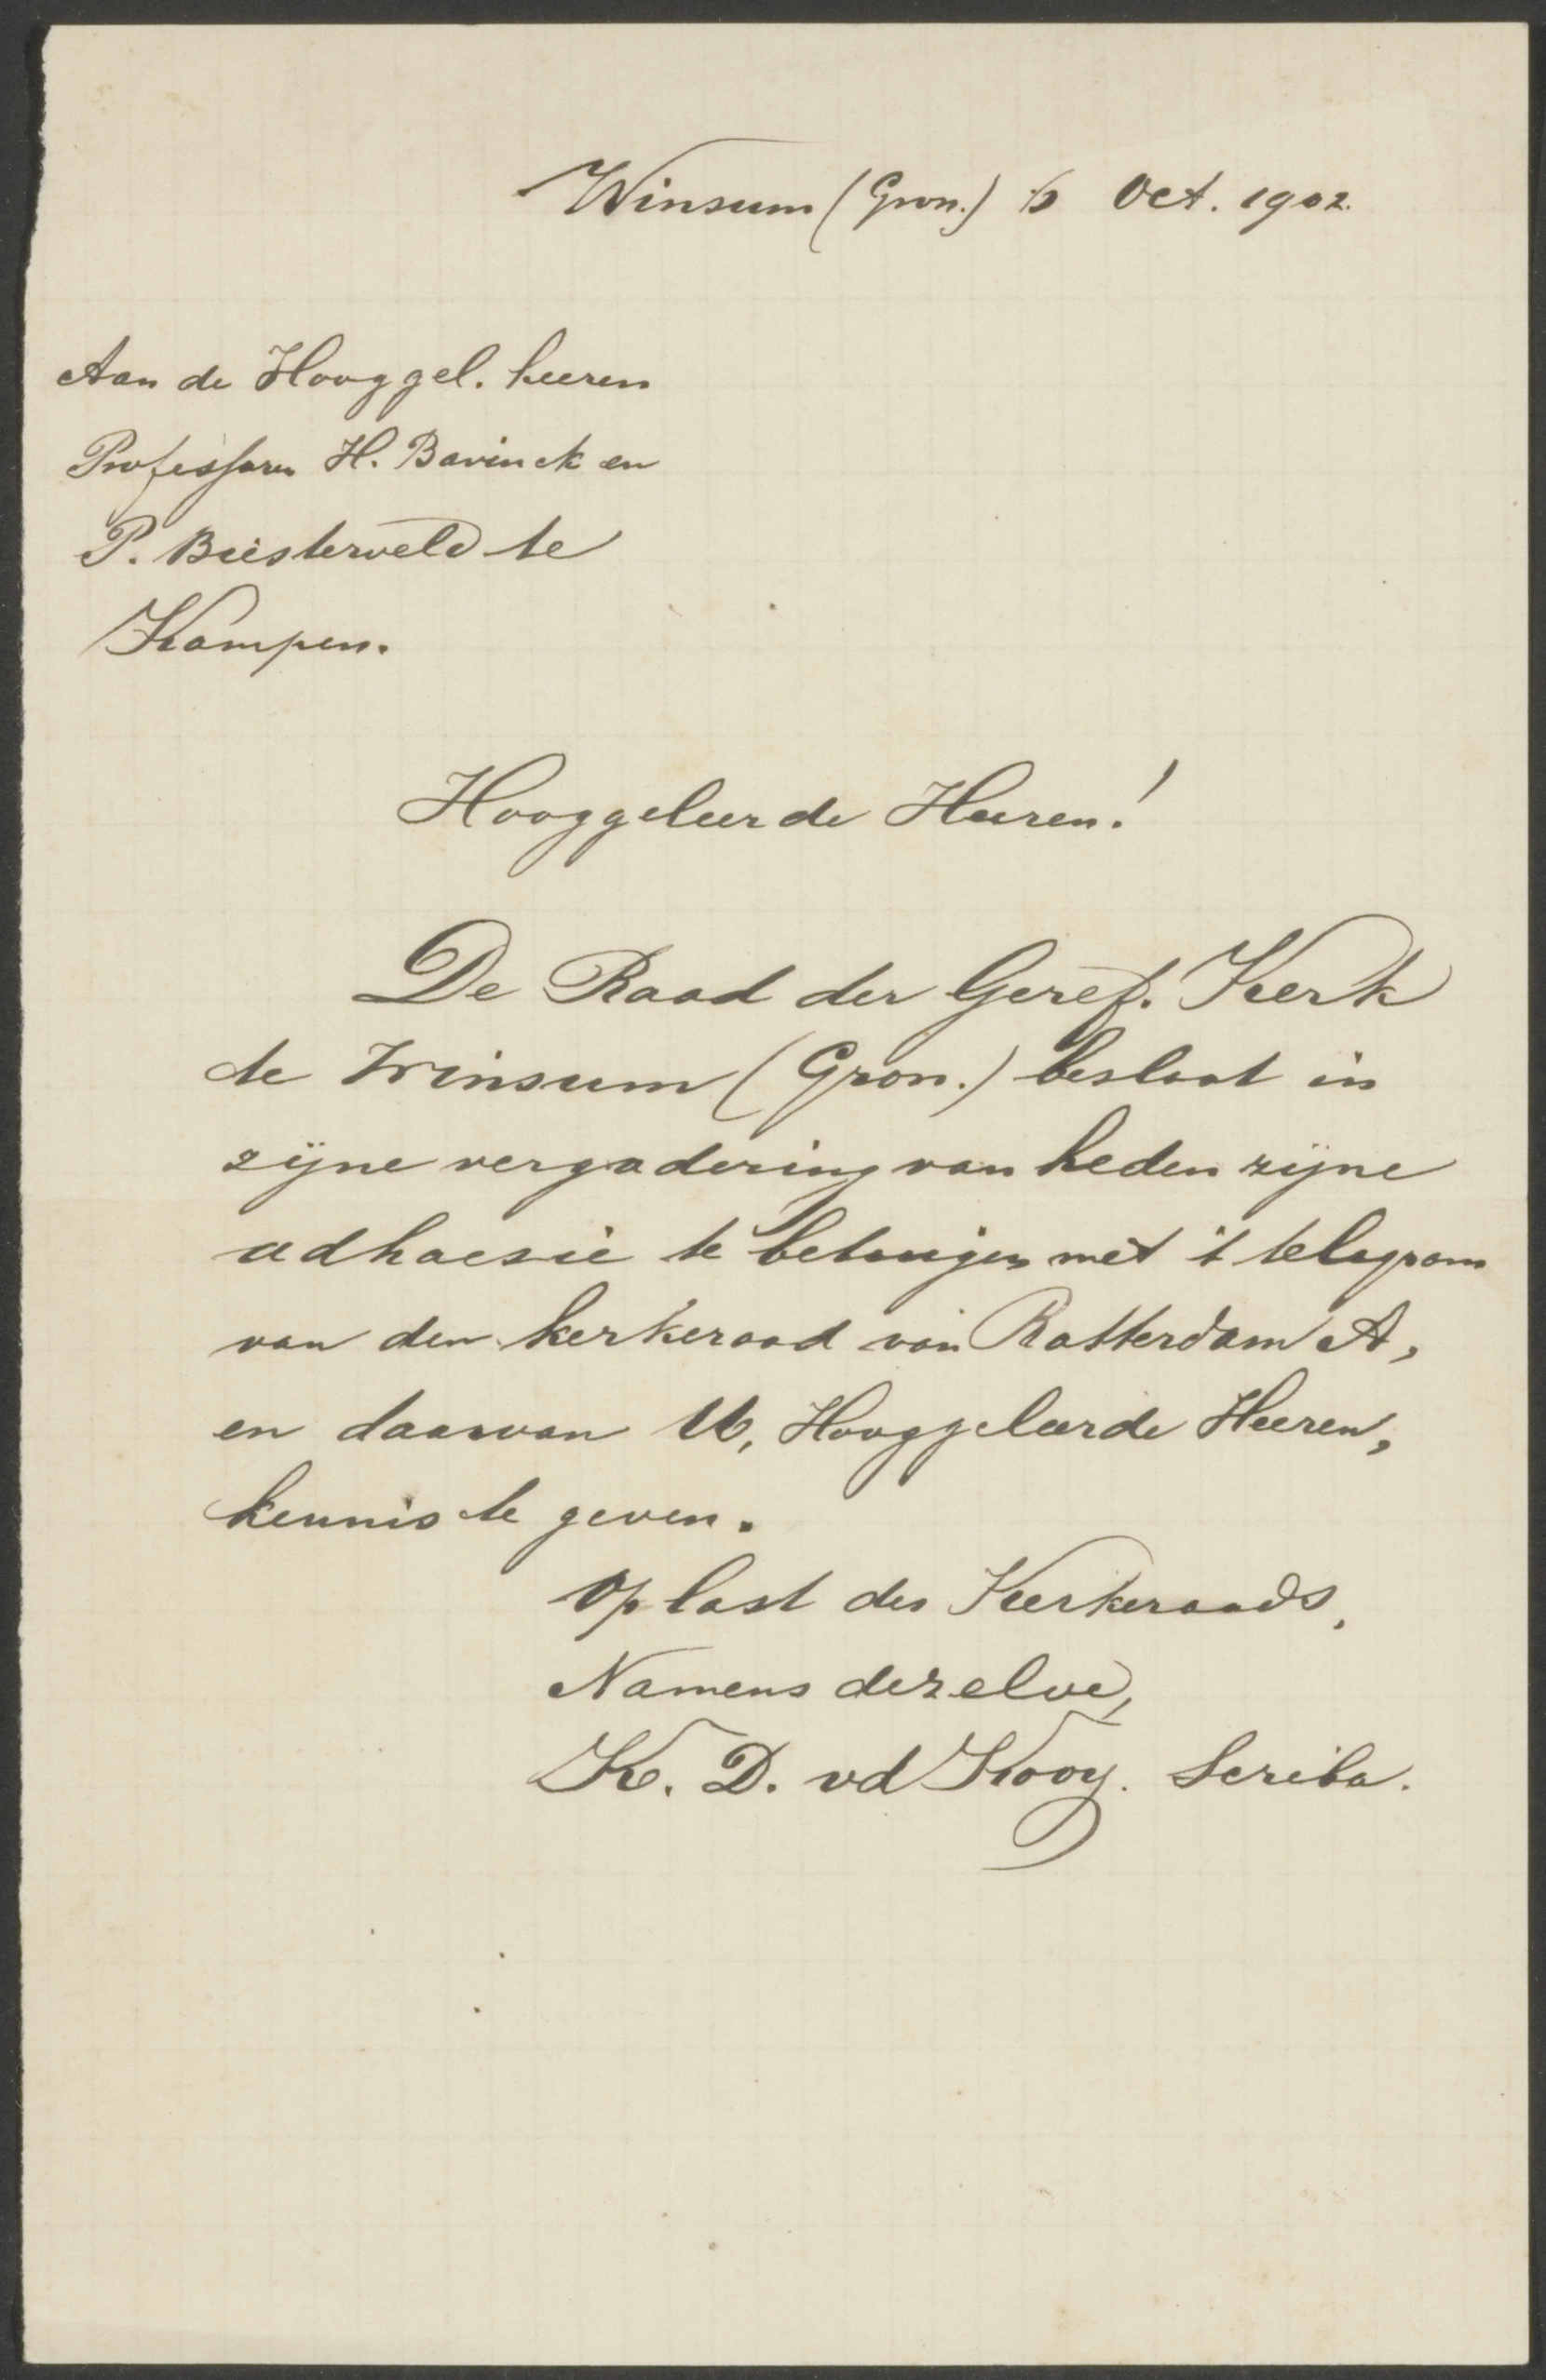 Winsum (Gron.) Oct. 1902.
Aan de Hooggel. heeren
Professoren H. Bavinck en
P. Biesterveld te
Kampen.
Hooggeleerde Heeren!
De Raad der Geref. Kerk
te Winsum (Gron.) besloot in
zijne vergadering van heden zijne
adhaesie te betuigen met 't telegram
van den kerkeraad van Rotterdam A,
en daarvan U, Hooggeleerde Heeren,
kennis te geven.
Op last des Kerkeraads,
Namens dezelve,
K. D. vd Kooy. Scriba.